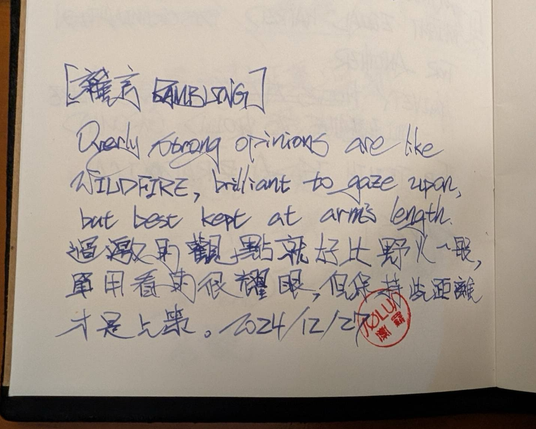 [雜言 RAMBLING]
Overly strong opinions are like
WILDFIRE, brilliant to gaze upon,
but best kept at arm's length.
過激的觀點就好比野火一般,
單用看的很耀眼,但保持些距離
才是上策。2024/12/27